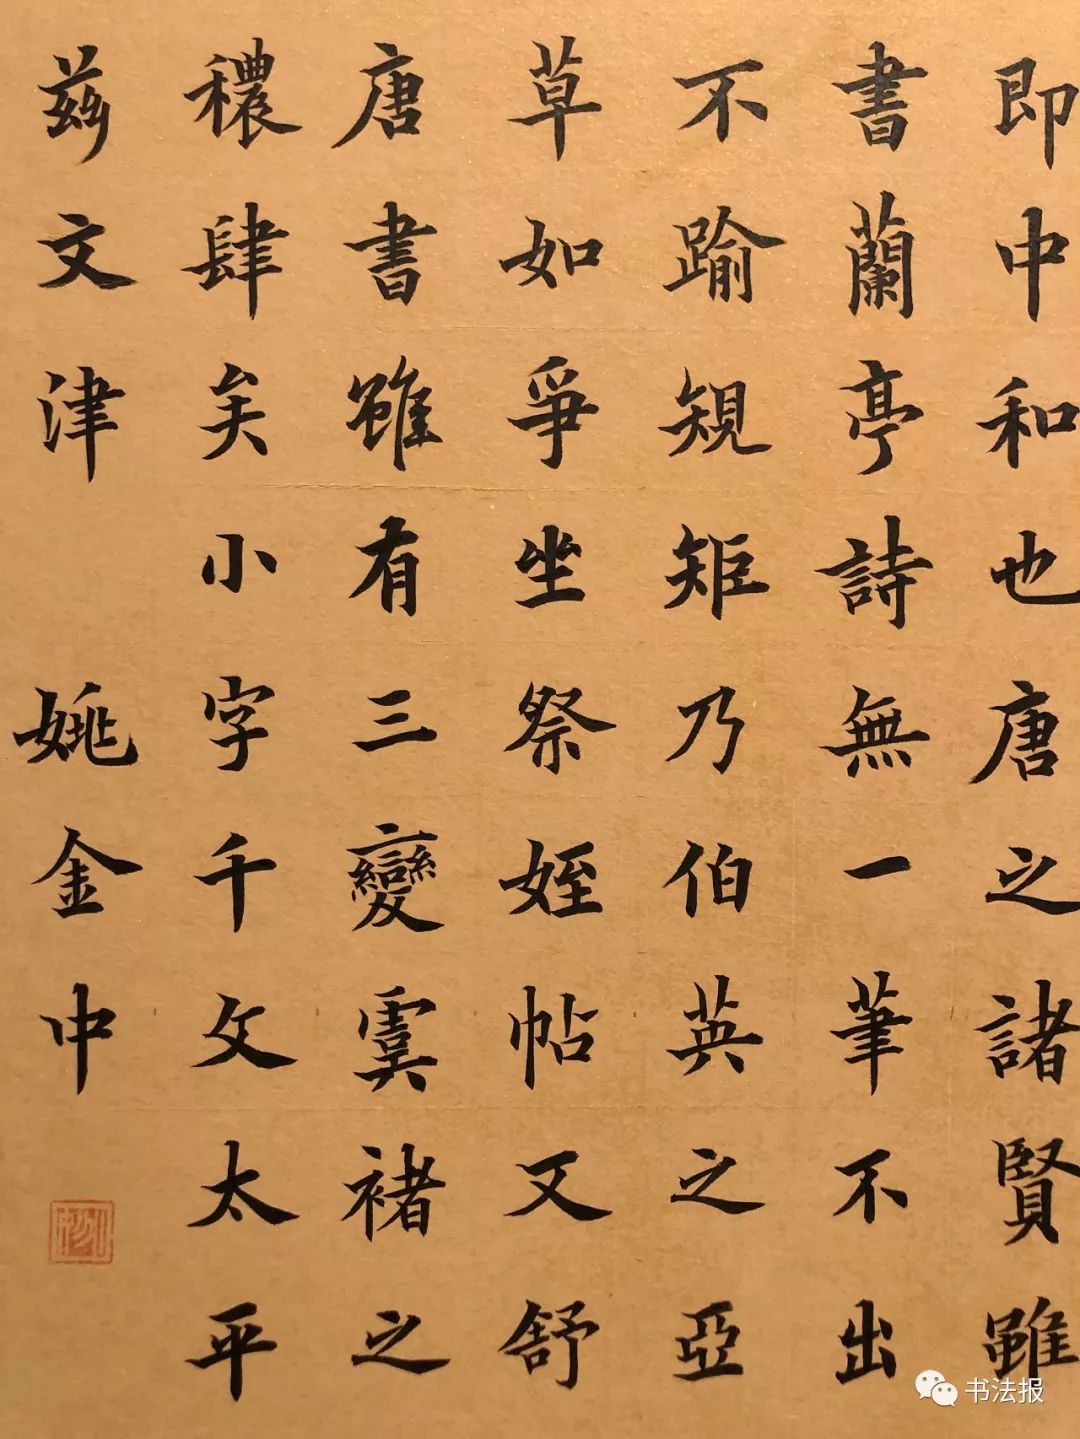 即中和也唐之諸賢雖
書蘭亭詩無一筆不出
不踰規矩乃伯英之亞
草如爭坐祭姪帖又舒
唐書雖有三變虞褚之
穠肆矣小字千文太平
茲文津 姚金中
书法报